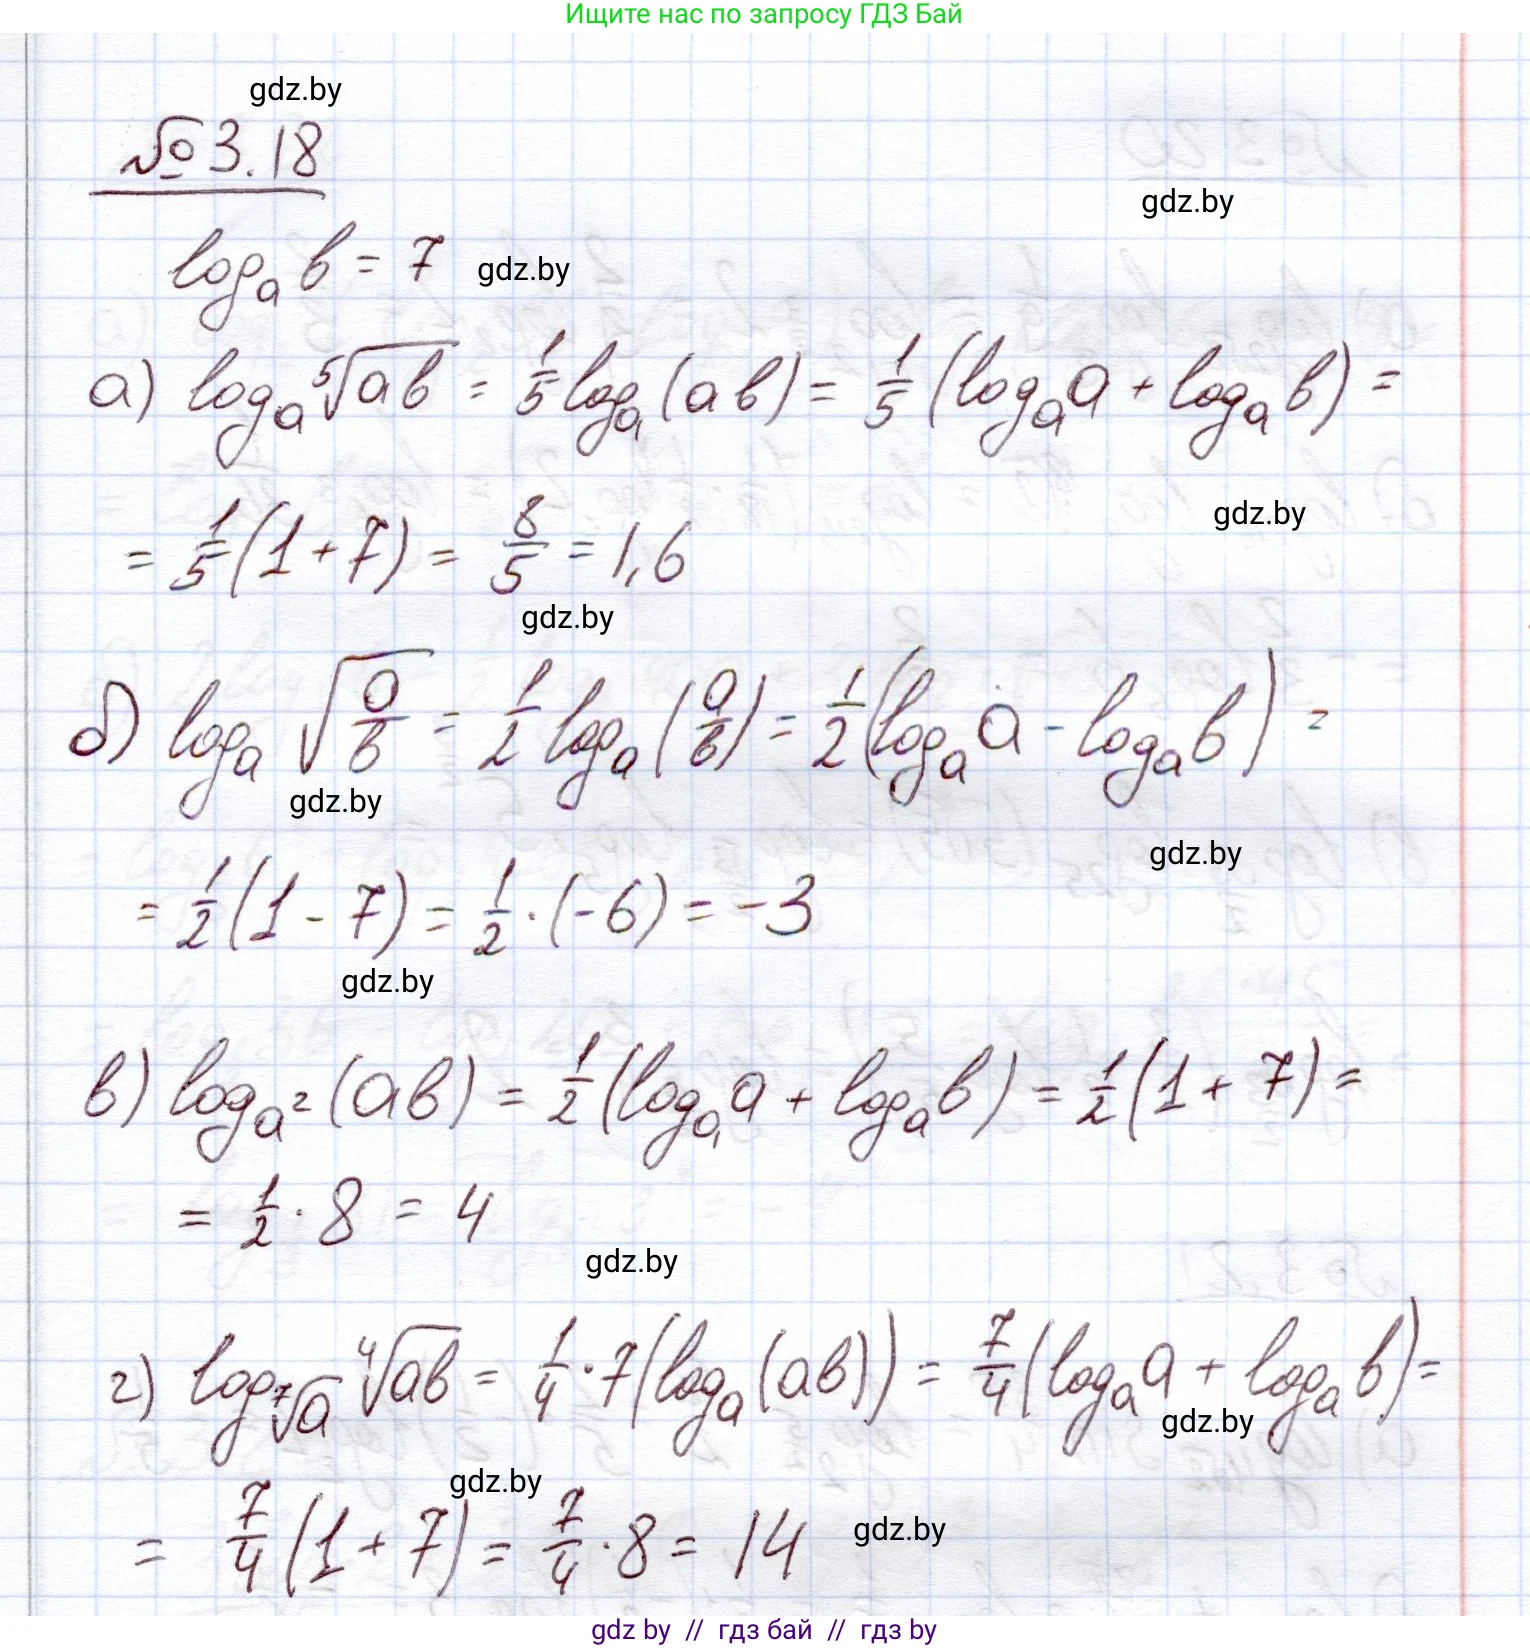 Ищите нас по запросу ГДЗ Бай
gdz.by
№ 3.18
gdz.by
logₐ b = 7 gdz.by
а) logₐ ⁵√(ab) = 1/5 logₐ(ab) = 1/5 (logₐ a + logₐ b) =
gdz.by
= 1/5 (1 + 7) = 8/5 = 1,6
gdz.by
б) logₐ √(a/b) = 1/2 logₐ (a/b) = 1/2 (logₐ a - logₐ b) =
gdz.by
gdz.by
= 1/2 (1 - 7) = 1/2 · (-6) = -3
gdz.by
в) log_a² (ab) = 1/2 (logₐ a + logₐ b) = 1/2 (1 + 7) =
= 1/2 · 8 = 4
gdz.by
г) log_⁷√a ⁴√(ab) = 1/4 · 7 (logₐ (ab)) = 7/4 (logₐ a + logₐ b) =
gdz.by
gdz.by
= 7/4 (1 + 7) = 7/4 · 8 = 14
gdz.by
gdz by // гдз бай // гдз by